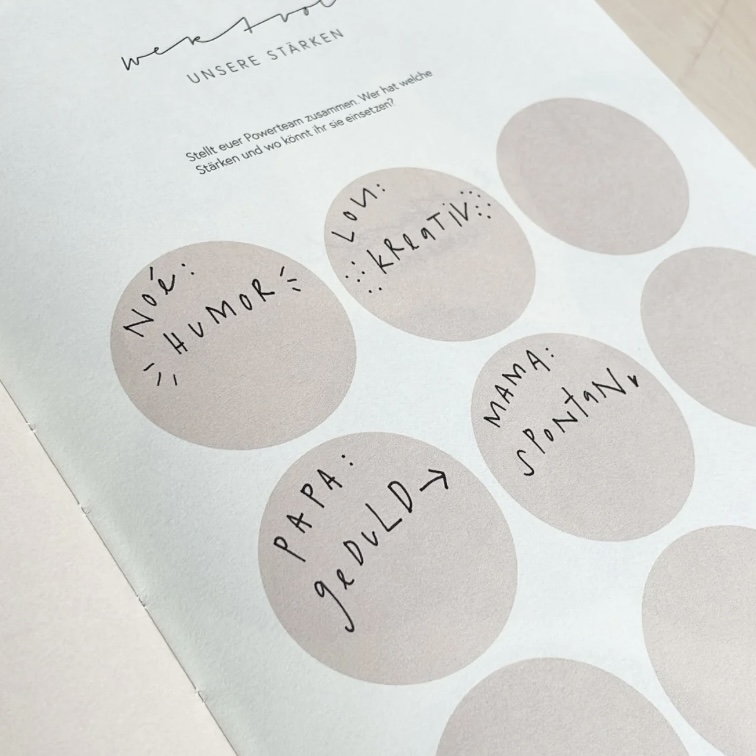 wertvol
UNSERE STÄRKEN
Stellt euer Powerteam zusammen. Wer hat welche
Stärken und wo könnt ihr sie einsetzen?
NOÉ:
HUMOR
LOU:
KREATIV
MAMA:
SPONTAN
PAPA:
GEDULD →